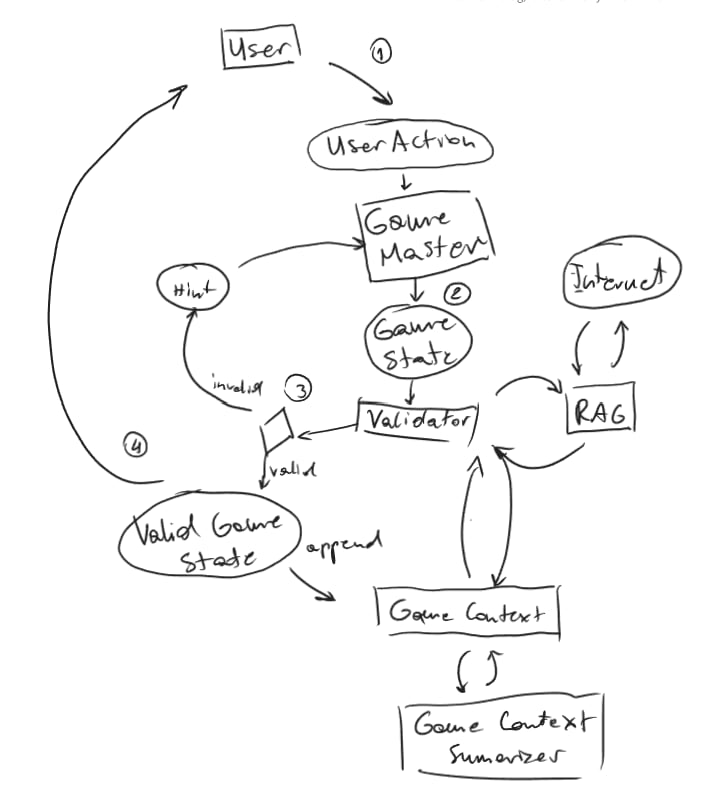 User
1
User Action
Game
Master
Internet
Hint
2
Game
State
invalid
3
Validator
RAG
4
valid
Valid Game
State
append
Game Context
Game Context
Sumarizer